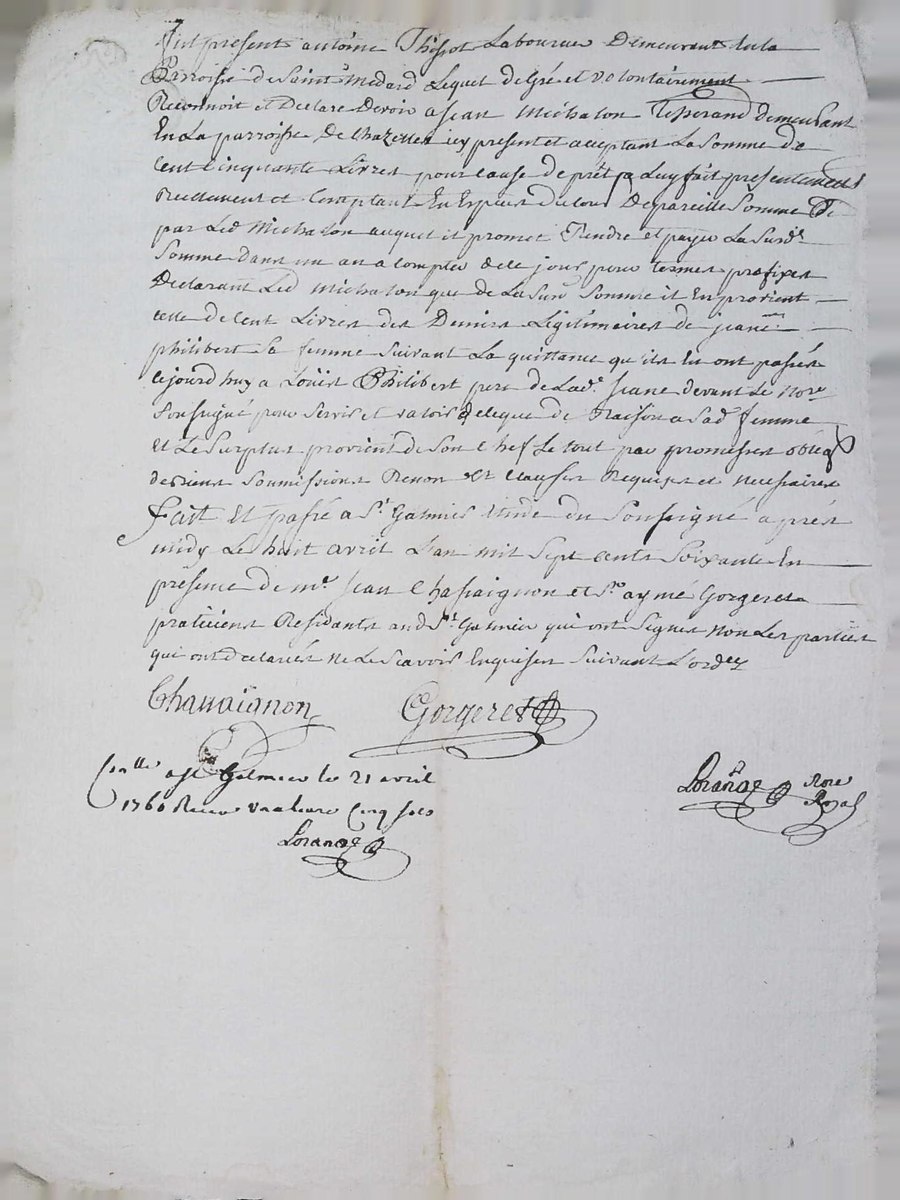 fut present antoine Thissot Laboureur Demeurant en la
Parroisse de Saint Medard Lequel de gré et volontairement
Reconnoit et Declare Devoir a Jean Michalon Tisserand demeurant
En La parroisse De Chazelles icy present et aceptant La Somme de
Cent Cinquante Livres pour cause de prêt a Luy fait presentement
Reelement et Comptant En Especes du cours De pareille Somme
par Led Michalon auquel it promet Rendre et payer La Surd.
Somme dans un an a compter de ce jour pour termes prefixes
Declarant Led Michalon que de La Surd Somme it En provient
celle de Cent Livres des Deniers Légitimaires de jeane
philibert Sa femme Suivant La quittance qu'ils En ont passés
cejourd huy a Loüis Philibert pere de Lad.e Jeane devant Le No.re
Soussigné pour Servir et valoir de ce que de Raison a Sad femme
et Le Surplus provient de Son Chef Le tout par promesses oblig
de biens Soumissions Renon et clauses Requises et necessaires
Fait et passé a S.t Galmier Etude du Soussigné aprés
midy Le huit avril L'an mil Sept cents Soixante En
presence de m.e Jean Chassaignon et S.r aymé Gorgeret
praticiens Residants aud S.t Galmier qui ont Signés Non Les parties
qui ont declarés Ne Le Scavoir Enquises Suivant L'ord.ce
Chassaignon Gorgeret
Con.lle a S.t Galmier le 21 avril
1760 Receu vingt cinq sols
Lorange
Lorange No.re Royal